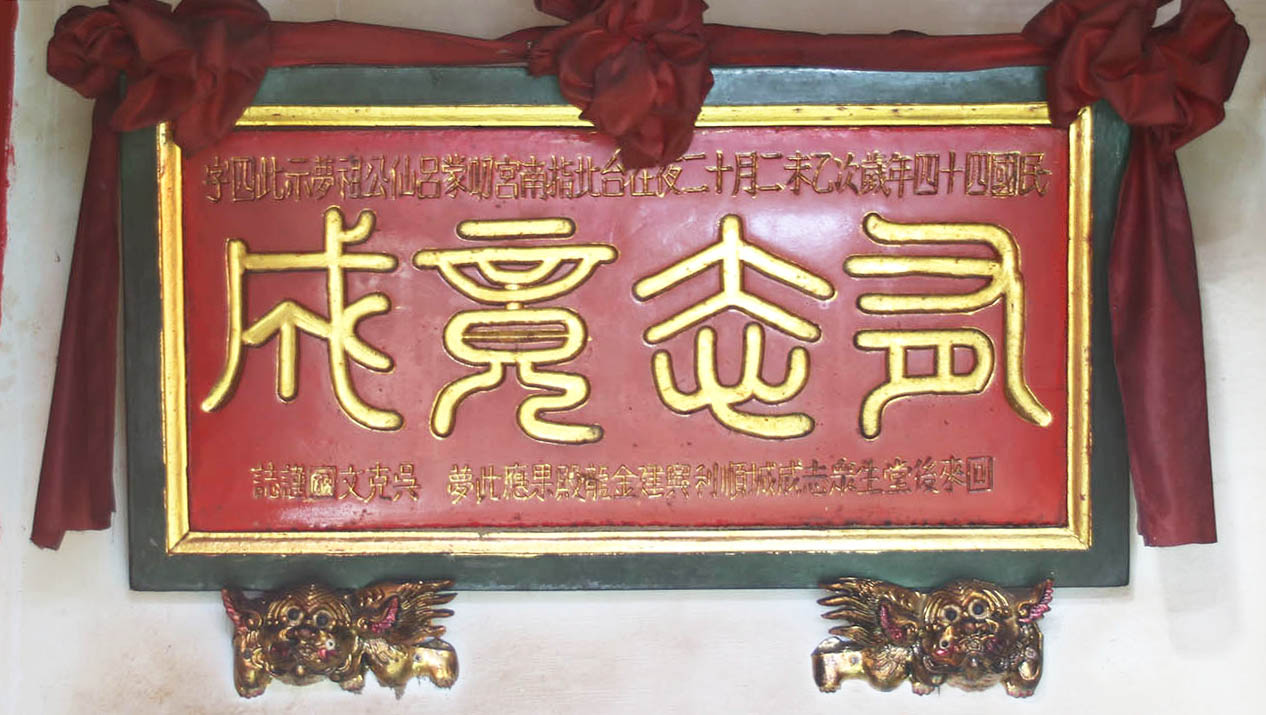 民國四十四年歲次乙未二月十二夜在台北指南宮叨蒙呂仙公祖夢示此四字
有志竟成
回來後堂生眾志成城順利興建金龍殿果應此夢 吳克文國謹誌